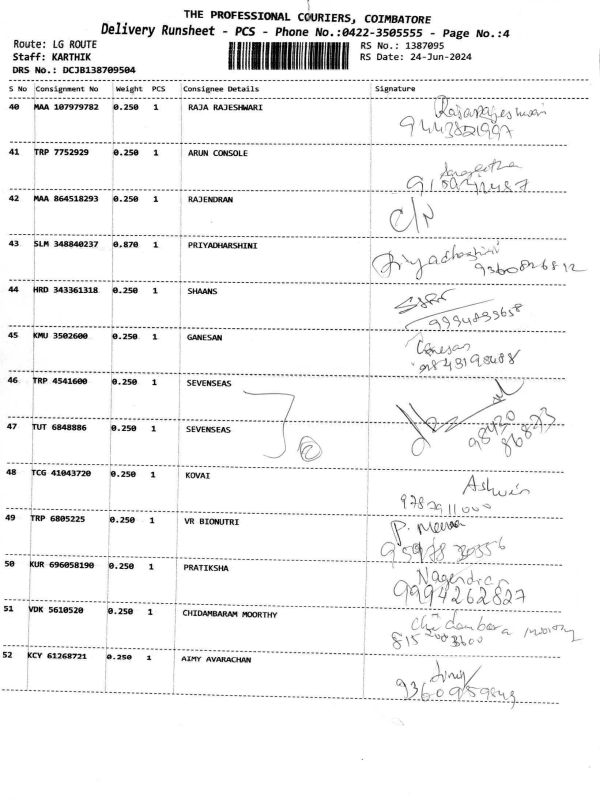 THE PROFESSIONAL COURIERS, COIMBATORE
Delivery Runsheet - PCS - Phone No.:0422-3505555 - Page No.:4
Route: LG ROUTE RS No.: 1387095
Staff: KARTHIK RS Date: 24-Jun-2024
DRS No.: DCJB138709504
S No Consignment No Weight PCS Consignee Details Signature
40 MAA 107979782 0.250 1 RAJA RAJESHWARI Rajarajeshwari
9443821997
41 TRP 7752929 0.250 1 ARUN CONSOLE Sangeetha
42 MAA 864518293 0.250 1 RAJENDRAN C/N
43 SLM 348840237 0.870 1 PRIYADHARSHINI Priyadharshini
9360826812
44 HRD 343361318 0.250 1 SHAANS
9994893658
45 KMU 3502600 0.250 1 GANESAN Ganesan
9843198488
46 TRP 4541600 0.250 1 SEVENSEAS
47 TUT 6848886 0.250 1 SEVENSEAS 2 98430
86873
48 TCG 41043720 0.250 1 KOVAI Ashwin
9787911000
49 TRP 6805225 0.250 1 VR BIONUTRI P. Meena
50 KUR 696058190 0.250 1 PRATIKSHA Nagendran
9994262827
51 VDK 5610520 0.250 1 CHIDAMBARAM MOORTHY Chidambara moorthy
52 KCY 61268721 0.250 1 AIMY AVARACHAN